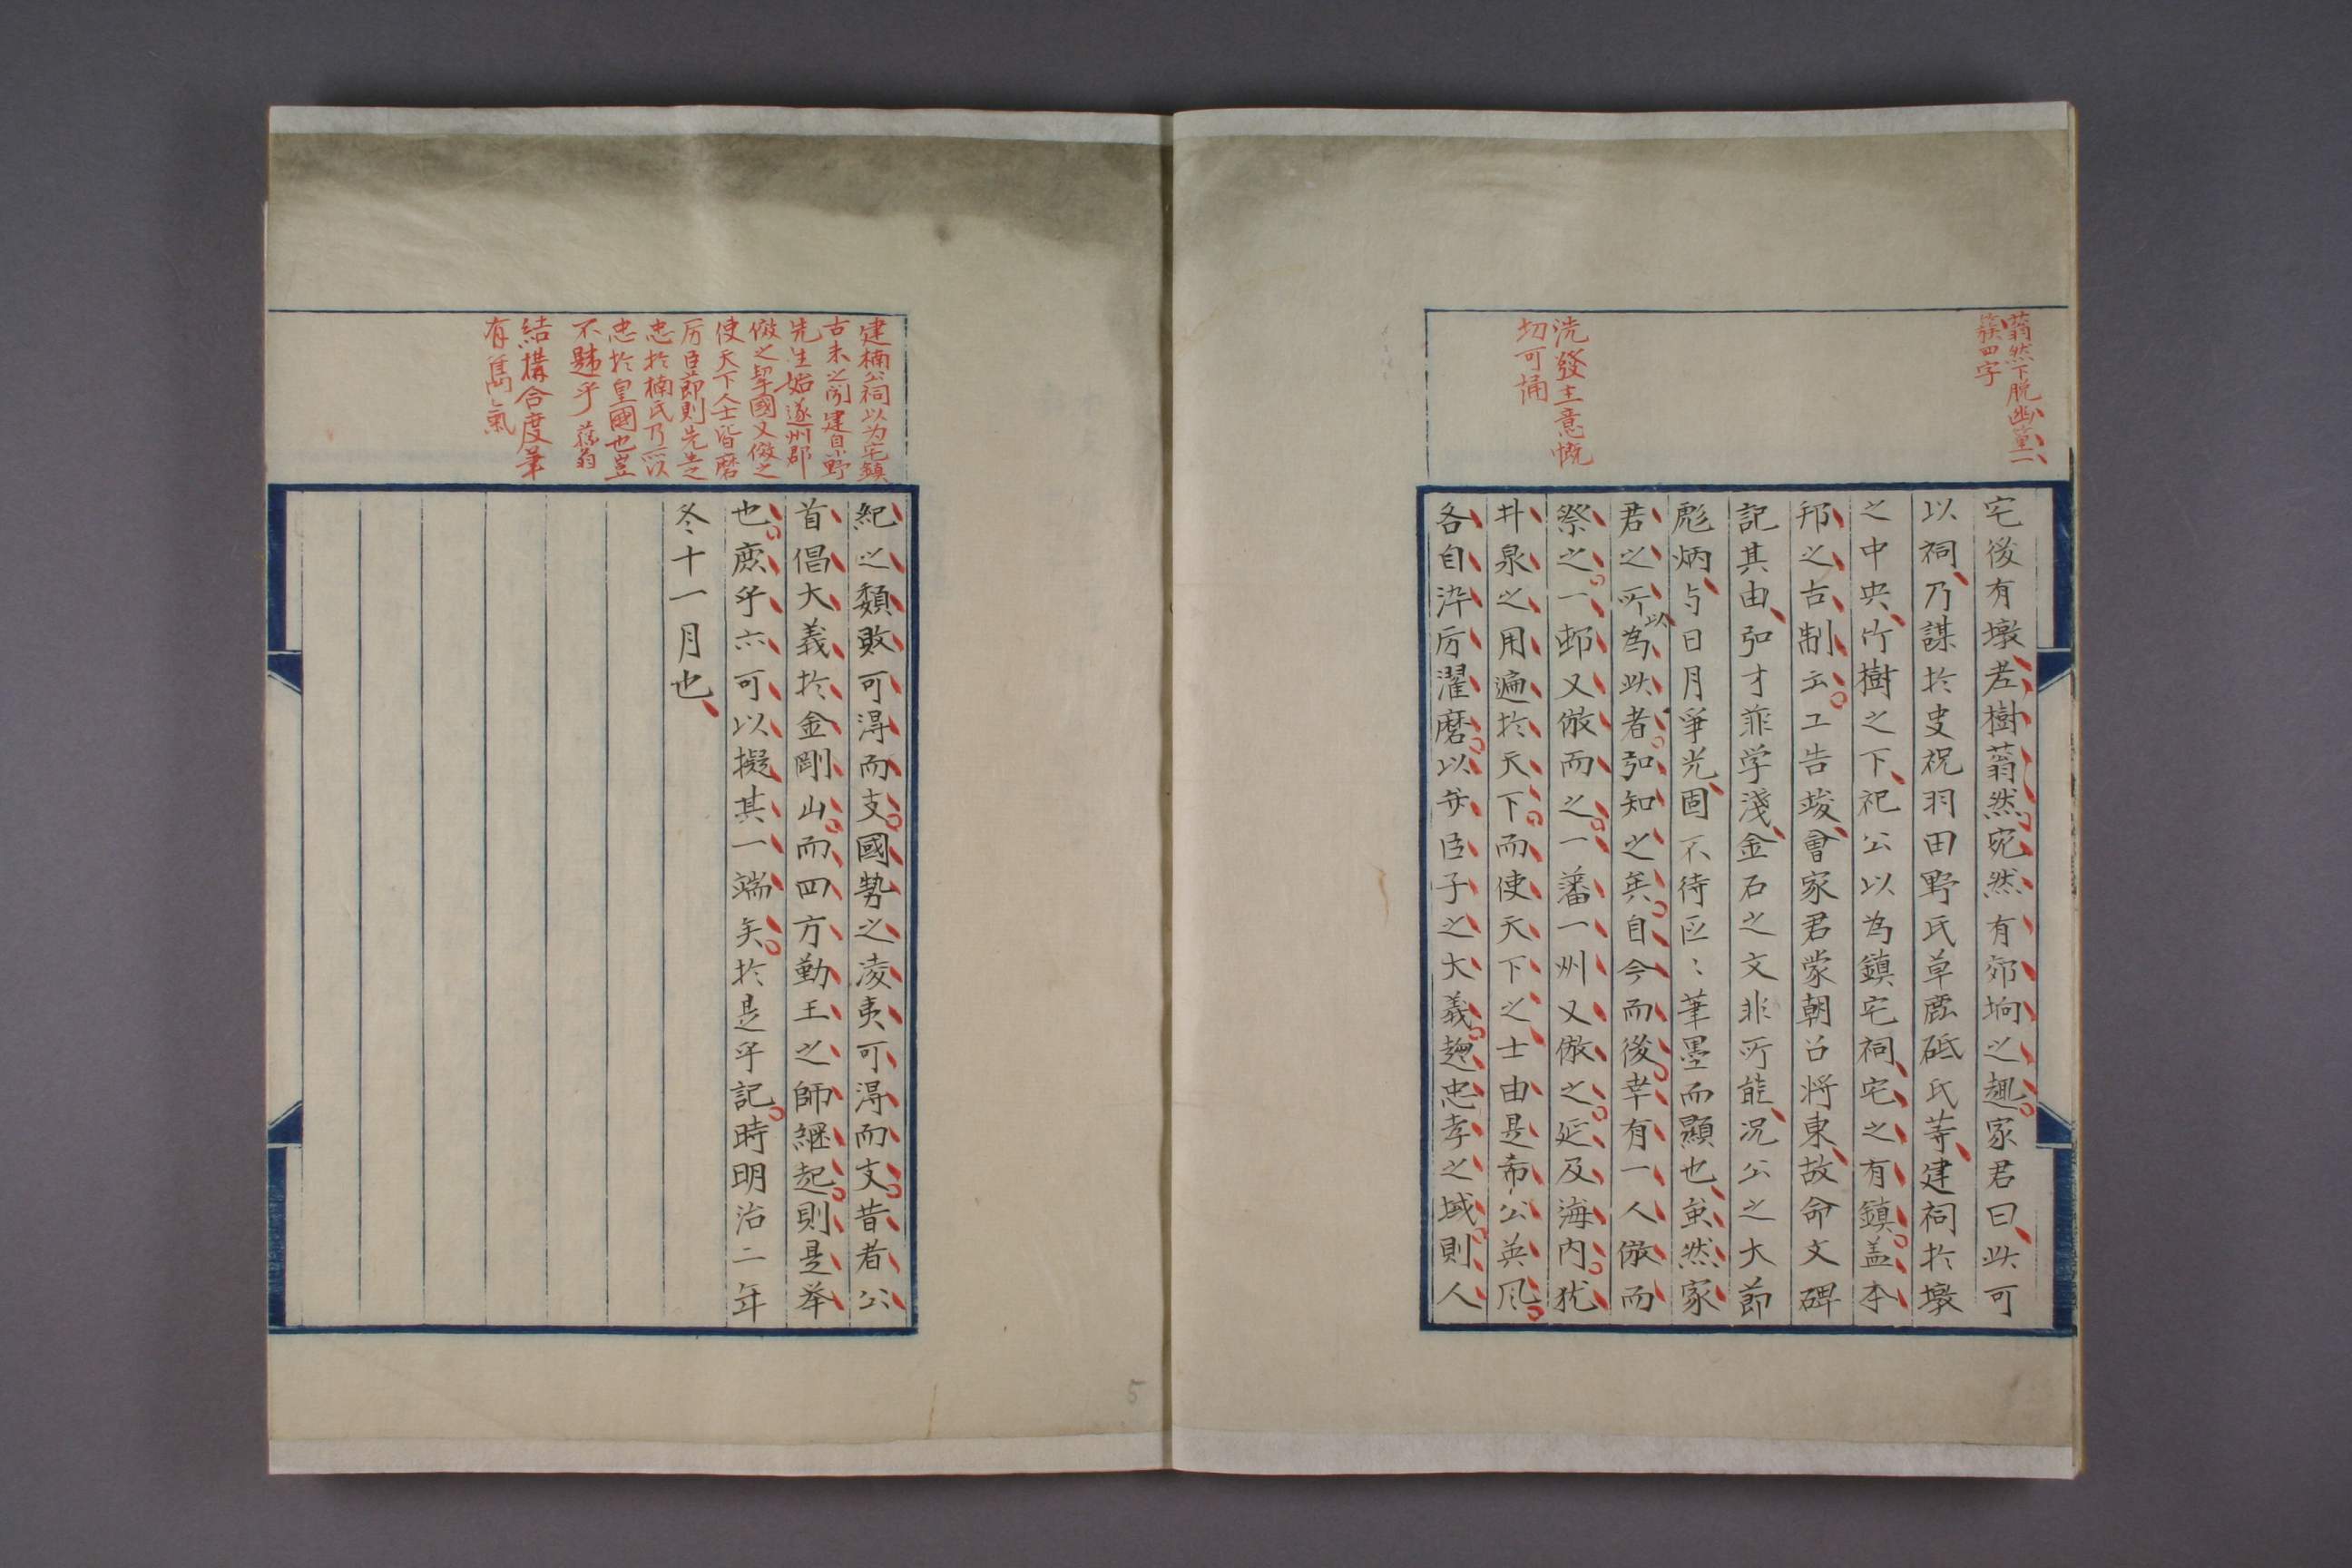 蓊然下脱幽篁一
簇四字
洗發主意慨
切可誦
宅後有墩老樹蓊然宛然有郊坰之趣家君曰此可
以祠乃謀於史祝羽田野氏草鹿砥氏等建祠於墩
之中央竹樹之下祀公以為鎮宅祠宅之有鎮盖本
邦之古制云工告竣會家君蒙朝召将東故命文碑
記其由弘才菲学淺金石之文非所能况公之大節
彪炳与日月爭光固不待区〻筆墨而顯也虽然家
君之所以為此者弘知之矣自今而後幸有一人倣而
祭之一邨又倣而之一藩一州又倣之延及海内犹
井泉之用遍於天下而使天下之士由是希公英风
各自淬厉濯磨以弁臣子之大義趣忠孝之域則人
建楠公祠以为宅鎮
古未之聞建自羽野
先生始遂州郡
倣之挙國又倣之
使天下人士皆磨
厉臣節則先生
忠於楠氏乃所以
忠於皇國也豈
不韙乎 翁
結構合度筆
有雋氣
紀之頽敗可淂而支國勢之凌夷可淂而支昔者公
首倡大義於金剛山而四方勤王之師継起則是举
也庶乎亦可以擬其一端矣於是乎記時明治二年
冬十一月也
5